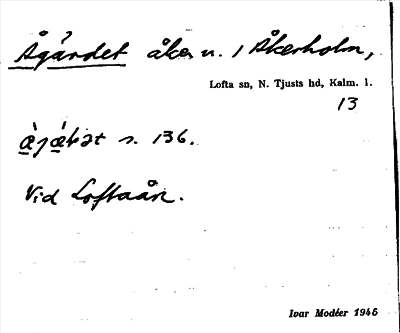 Ågärdet åker n. 1 Åkerholm,
Lofta sn, N. Tjusts hd, Kalm. l.
13
s. 136.
Vid Loftaån.
Ivar Modéer 1946